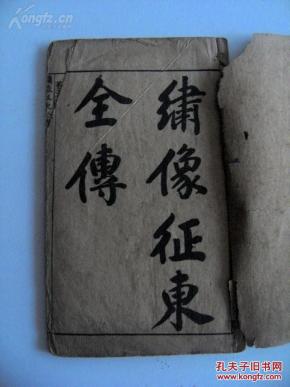 繡像征東
全傳
Kongfz.com
孔夫子旧书网
www.kongfz.com